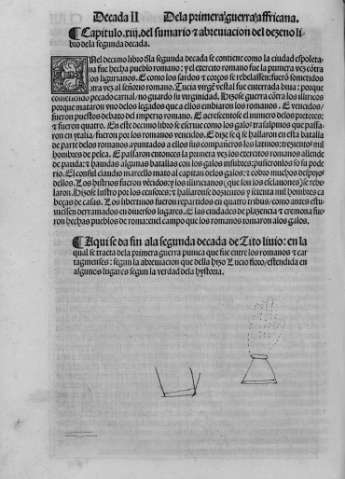 Decada II De la primera guerra affricana.
¶ Capitulo .xiij. del sumario ⁊ abreuiacion del dezeno li
bro dela segunda decada.
EN el decimo libro dla segunda decada se contiene como la ciudad
fue hecha pueblo romano: y el exercito romano fue la primera vez cõtra
los ligurianos. E como los sardos ⁊ corços se rebelassen: fuerõ sometidos
otra vez al señorio romano. Tucia virgẽ vestal fue enterrada biua: porque
cometiendo pecado carnal, no guardo su virginidad. Hizose guerra cõtra los illiricos
porque mataron vno delos legados que a ellos embiaron los romanos. E vencidos
fueron puestos debaxo del imperio romano. E acrescentose el numero delos pretores:
⁊ fueron quatro. En este decimo libro se escriue como los galos trãsalpinos que passa
ron en ytalia: fueron por los romanos vencidos. E dize se q̃ se hallaron en esta batalla
de parte delos romanos ayuntados a ellos sus compañeros los latinos: trezientos mil
hombres de pelea. E passaron entonces la primera vez los exercitos romanos allende
de panda: ⁊ hauidas algunas batallas con los galos insubres: pusieron los so su pode
rio. El consul claudio marcello mato al capitan delos galos: ⁊ cobro muchos despojos
dellos. Los histrios fueron vẽcidos: y los illiricanos (que son los esclauones) se rebe
laron. Hizose la lustro por los censores: ⁊ hallaronse dozientos y setenta mil hombres ca
beças de casas. Los libertinos fueron repartidos en quatro tribus: como antes estu
uiessen derramados en diuersos lugares. E las ciudades de plazencia ⁊ cremona fue
ron hechas pueblos de roma: enel campo que los romanos tomaron alos galos.
¶ Aqui se da fin ala segunda decada de Tito liuio: en la
qual se tracta dela primera guerra punica que fue entre los romanos ⁊ car
tagineses: segun la abreuiacion que della hizo Lucio floro/ estendida en
algunos lugares segun la verdad dela hystoria.